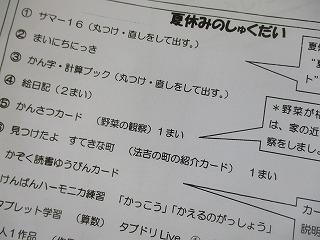 夏休みのしゅくだい
① サマー16（丸つけ・直しをして出す。）
② まいにちにっき
③ かん字・計算ブック（丸つけ・直しをして出す。）
④ 絵日記（2まい）
⑤ かんさつカード（野菜の観察）1まい
⑥ 見つけたよ すてきな町（法吉の町の紹介カード） 1まい
かぞく読書ゆうびんカード
けんばんハーモニカ練習 「かっこう」「かえるのがっしょう」
タブレット学習（算数） タブドリLive
人1作品
夏休
＊野菜が
は、家の近
察をしましょ
カー
説明